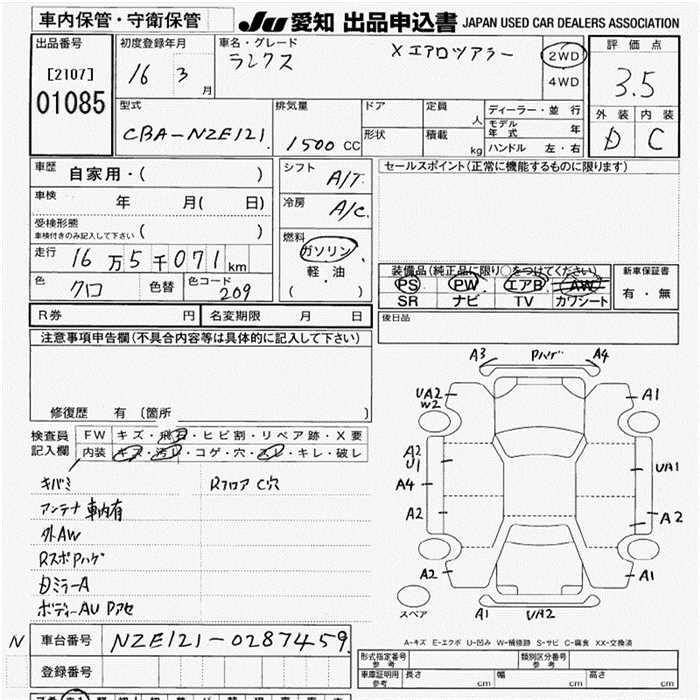 車内保管・守衛保管
JU 愛知 出品申込書 JAPAN USED CAR DEALERS ASSOCIATION
出品番号
[2107]
01085
初度登録年月
16 3 月
車名・グレード
ランクス Xエアロツアラー
2WD
4WD
評価点
3.5
外装 内装
D C
型式
CBA-NZE121
排気量
1500 CC
ドア
形状
定員 人
積載 kg
ディーラー・並 行
モデル年式 年
ハンドル 左・右
車歴 自家用・( )
車検 年 月( 日)
受検形態
車検付きのみ記入して下さい ( )
走行 16万5千071km
色 クロ 色替 色コード 209
シフト A/T
冷房 A/C
燃料
ガソリン
軽・油
( ・ )
セールスポイント(正常に機能するものに限ります)
装備品(純正品に限り○をつけてください)
PS PW エアB AW
SR ナビ TV カワシート
新車保証書
有・無
後日品
R券 円 名変期限 月 日
注意事項申告欄(不具合内容等は具体的に記入して下さい)
修復歴 有 〔箇所 〕
検査員
記入欄
FW キズ・飛石・ヒビ割・リペア跡・X要
内装 キズ・汚れ・コゲ・穴・スレ・キレ・破レ
キバミ RフロアC穴
アンテナ車内有
外AW
RスポPハゲ
ミラーA
ボディーAU Pアセ
A3 Pハゲ A4
UA2
W2
A1
A2
U1
UA1
A4
A2 A2
A2 A1
スペア
A1 UA2
A-キズ E-エクボ U-凹み W-補修跡 S-サビ C-腐食 XX-交換済
N 車台番号 NZE121-0287459
登録番号
形式指定番号
参考
類別区分番号
参考
車庫証明用
参考
長さ cm 幅 cm 高さ cm